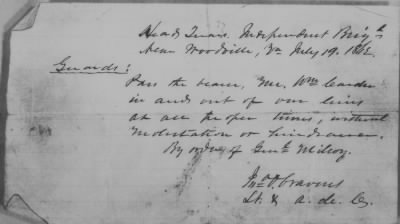 Head Quars. Independent Brigd.
near Woodville, Va July 19. 1862.
Guards:
Pass the bearer, Mr. Wm
in and out of our lines
at all proper times, without
molestation or hindrance.
By order of Genl. Milroy.
Jno. O. Cravens
Lt. & A. de. C.